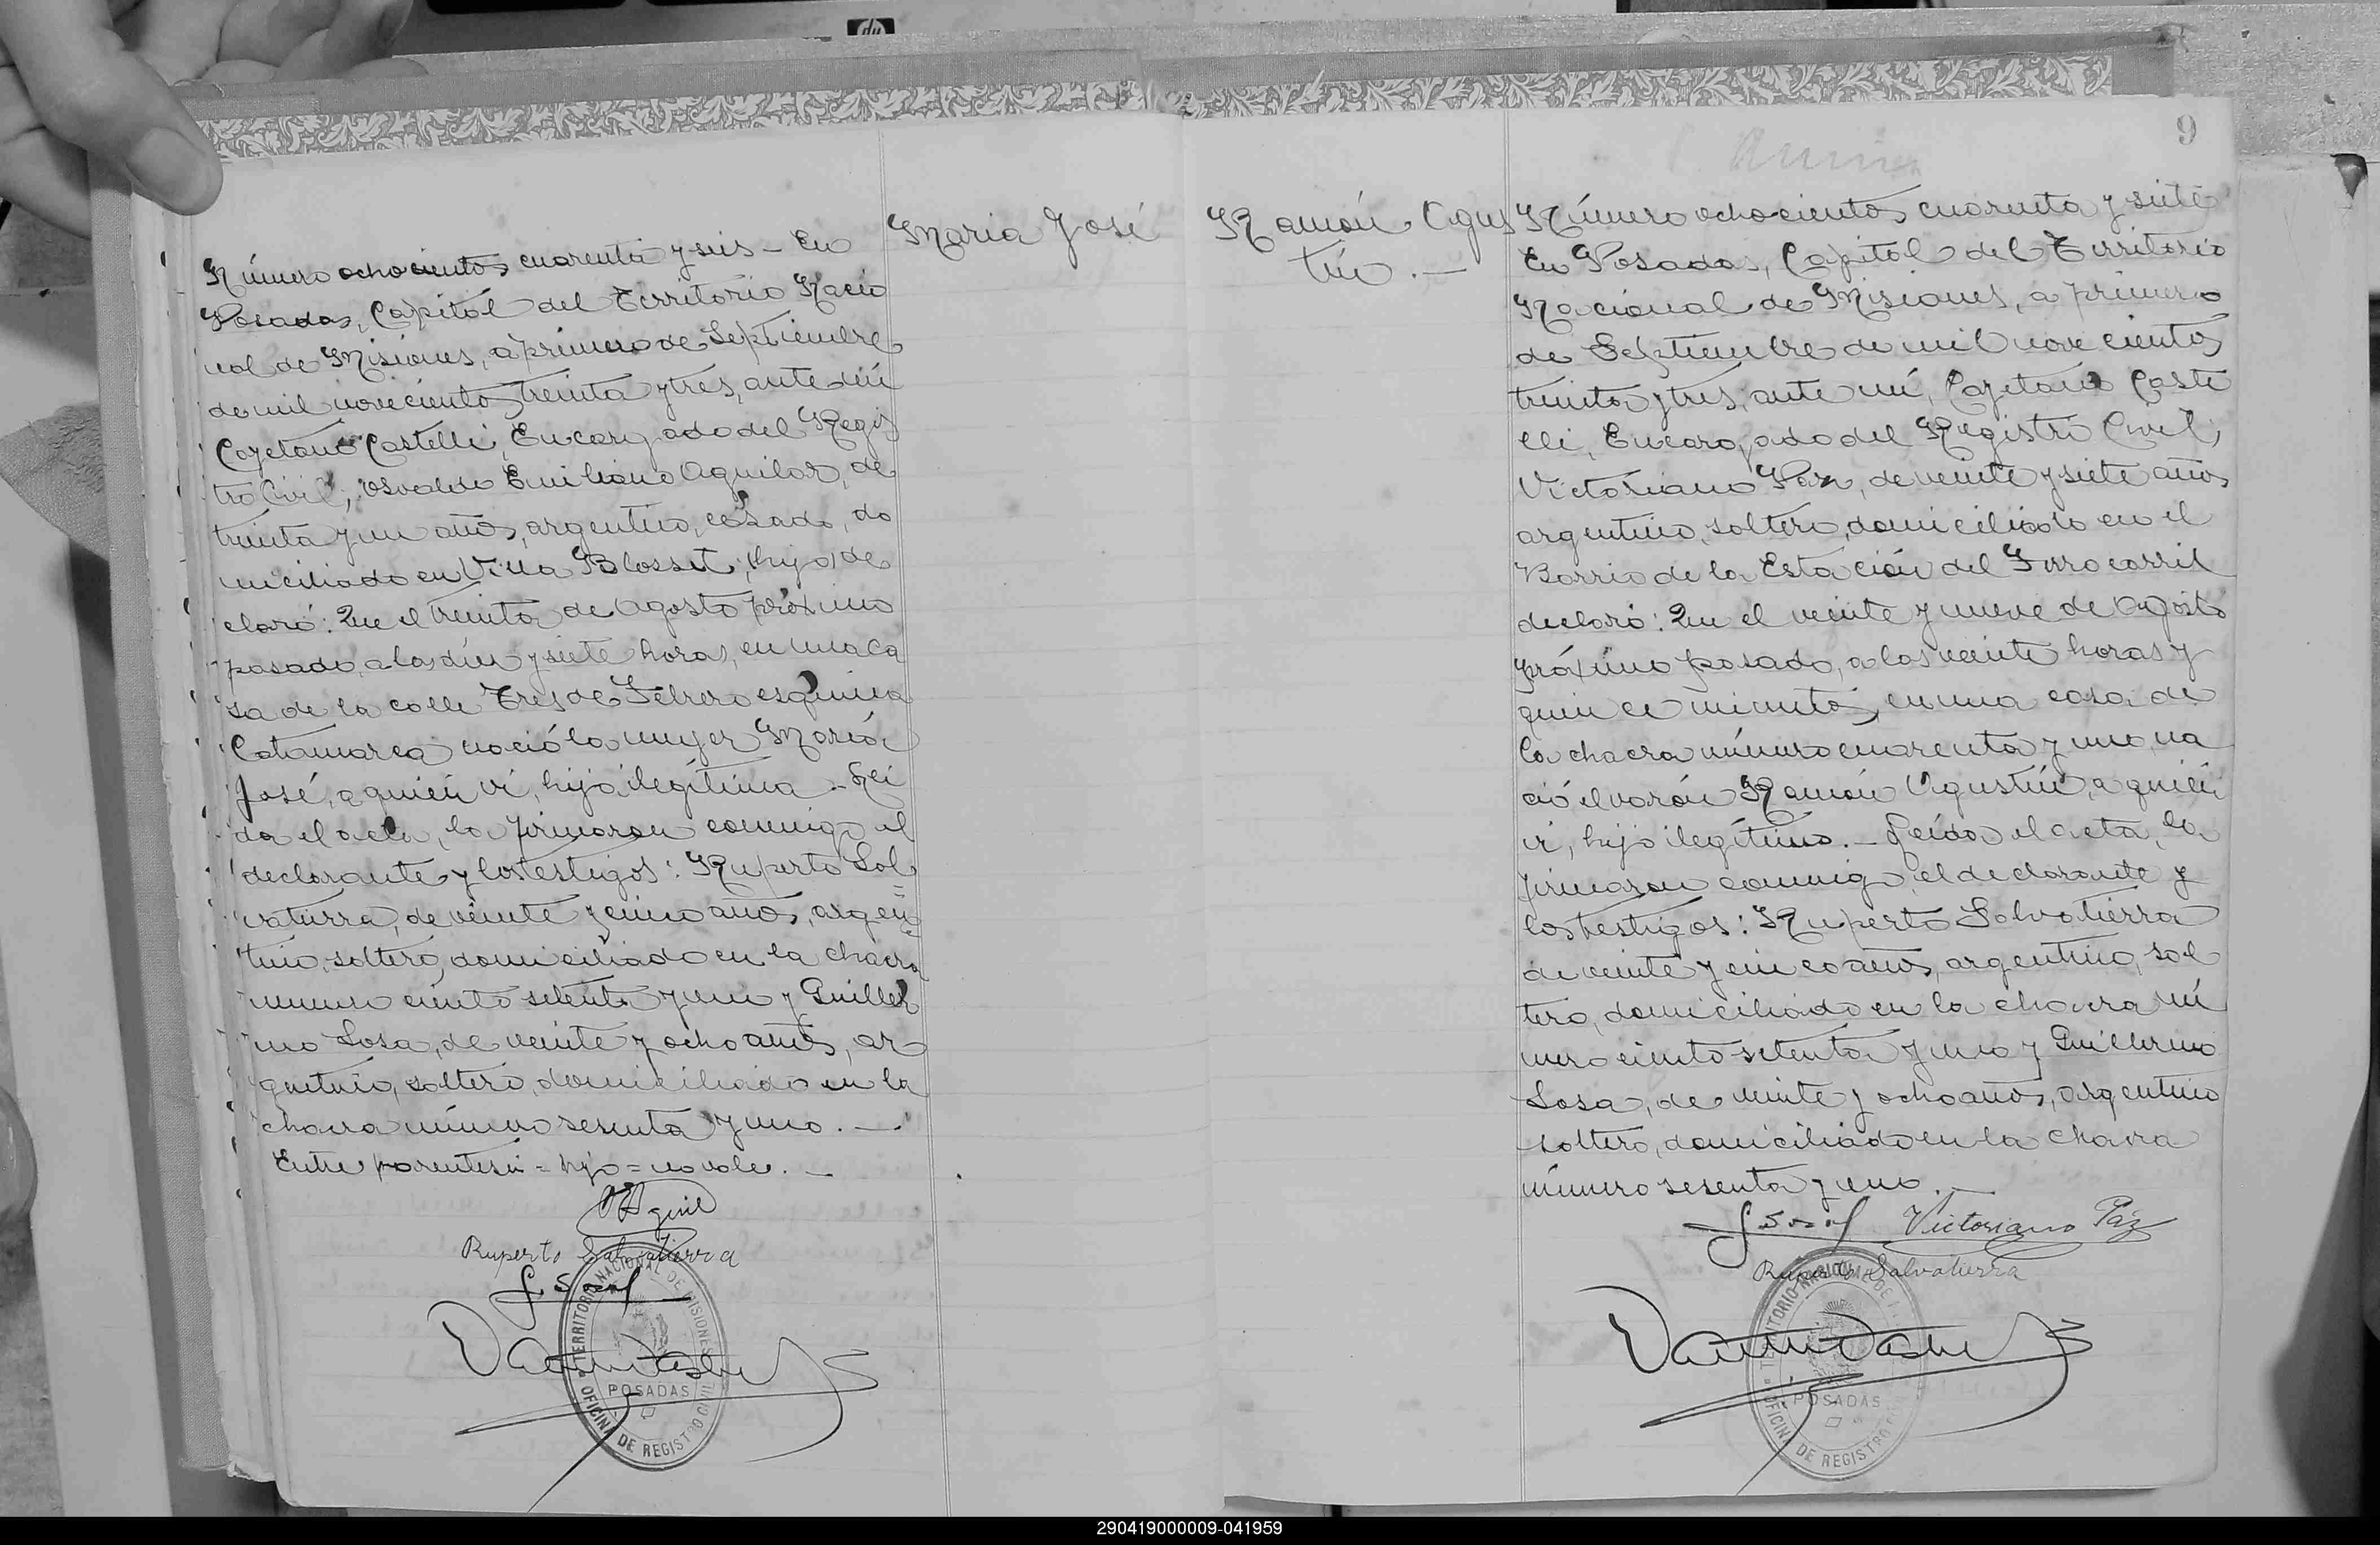 María José
Número ochocientos cuarenta y seis - En
Posadas, Capital del Territorio Nacio
nal de Misiones, a primero de Septiembre
de mil novecientos treinta y tres, ante mí
Cayetano Castelli, Encargado del Regis
tro Civil, Osvaldo Emiliano Aguilar, de
treinta y un años, argentino, casado, do
miciliado en Villa Blosset, (hijo) de
claró: Que el treinta de Agosto próximo
pasado, a las diez y siete horas, en una ca
sa de la calle Tres de Febrero esquina
Catamarca nació la mujer María
José, a quién ví, hija ilegítima. - Leí
da el acta, la firmaron conmigo el
declarante y los testigos: Ruperto Sal
vatierra, de veinte y cinco años, argen
tino, soltero, domiciliado en la chacra
número ciento setenta y uno y Guiller
mo Sosa, de veinte y ocho años, ar
gentino, soltero, domiciliado en la
chacra número sesenta y uno. —
Entre parentesis = hijo = no vale. —
Ruperto Salvatierra
TERRITORIO NACIONAL DE MISIONES
POSADAS
OFICINA DE REGISTRO CIVIL
9
Ramón Agus
tín. —
Número ochocientos cuarenta y siete
En Posadas, Capital del Territorio
Nacional de Misiones, a primero
de Septiembre de mil novecientos
treinta y tres, ante mí, Cayetano Caste
lli, Encargado del Registro Civil,
Victoriano Paz, de veinte y siete años
argentino, soltero, domiciliado en el
Barrio de la Estación del Ferrocarril
declaró: Que el veinte y nueve de Agosto
próximo pasado, a las veinte horas y
quince minutos, en una casa de
la chacra número cuarenta y uno, na
ció el varón Ramón Agustín, a quién
ví, hijo ilegítimo. - Leída el acta, la
firmaron conmigo, el declarante y
los testigos: Ruperto Salvatierra
de veinte y cinco años, argentino, sol
tero, domiciliado en la chacra nú
mero ciento setenta y uno y Guillermo
Sosa, de veinte y ocho años, argentino
soltero, domiciliado en la chacra
número sesenta y uno. —
Victoriano Paz
Ruperto Salvatierra
TERRITORIO NACIONAL DE
POSADAS
OFICINA DE REGISTRO
290419000009-041959